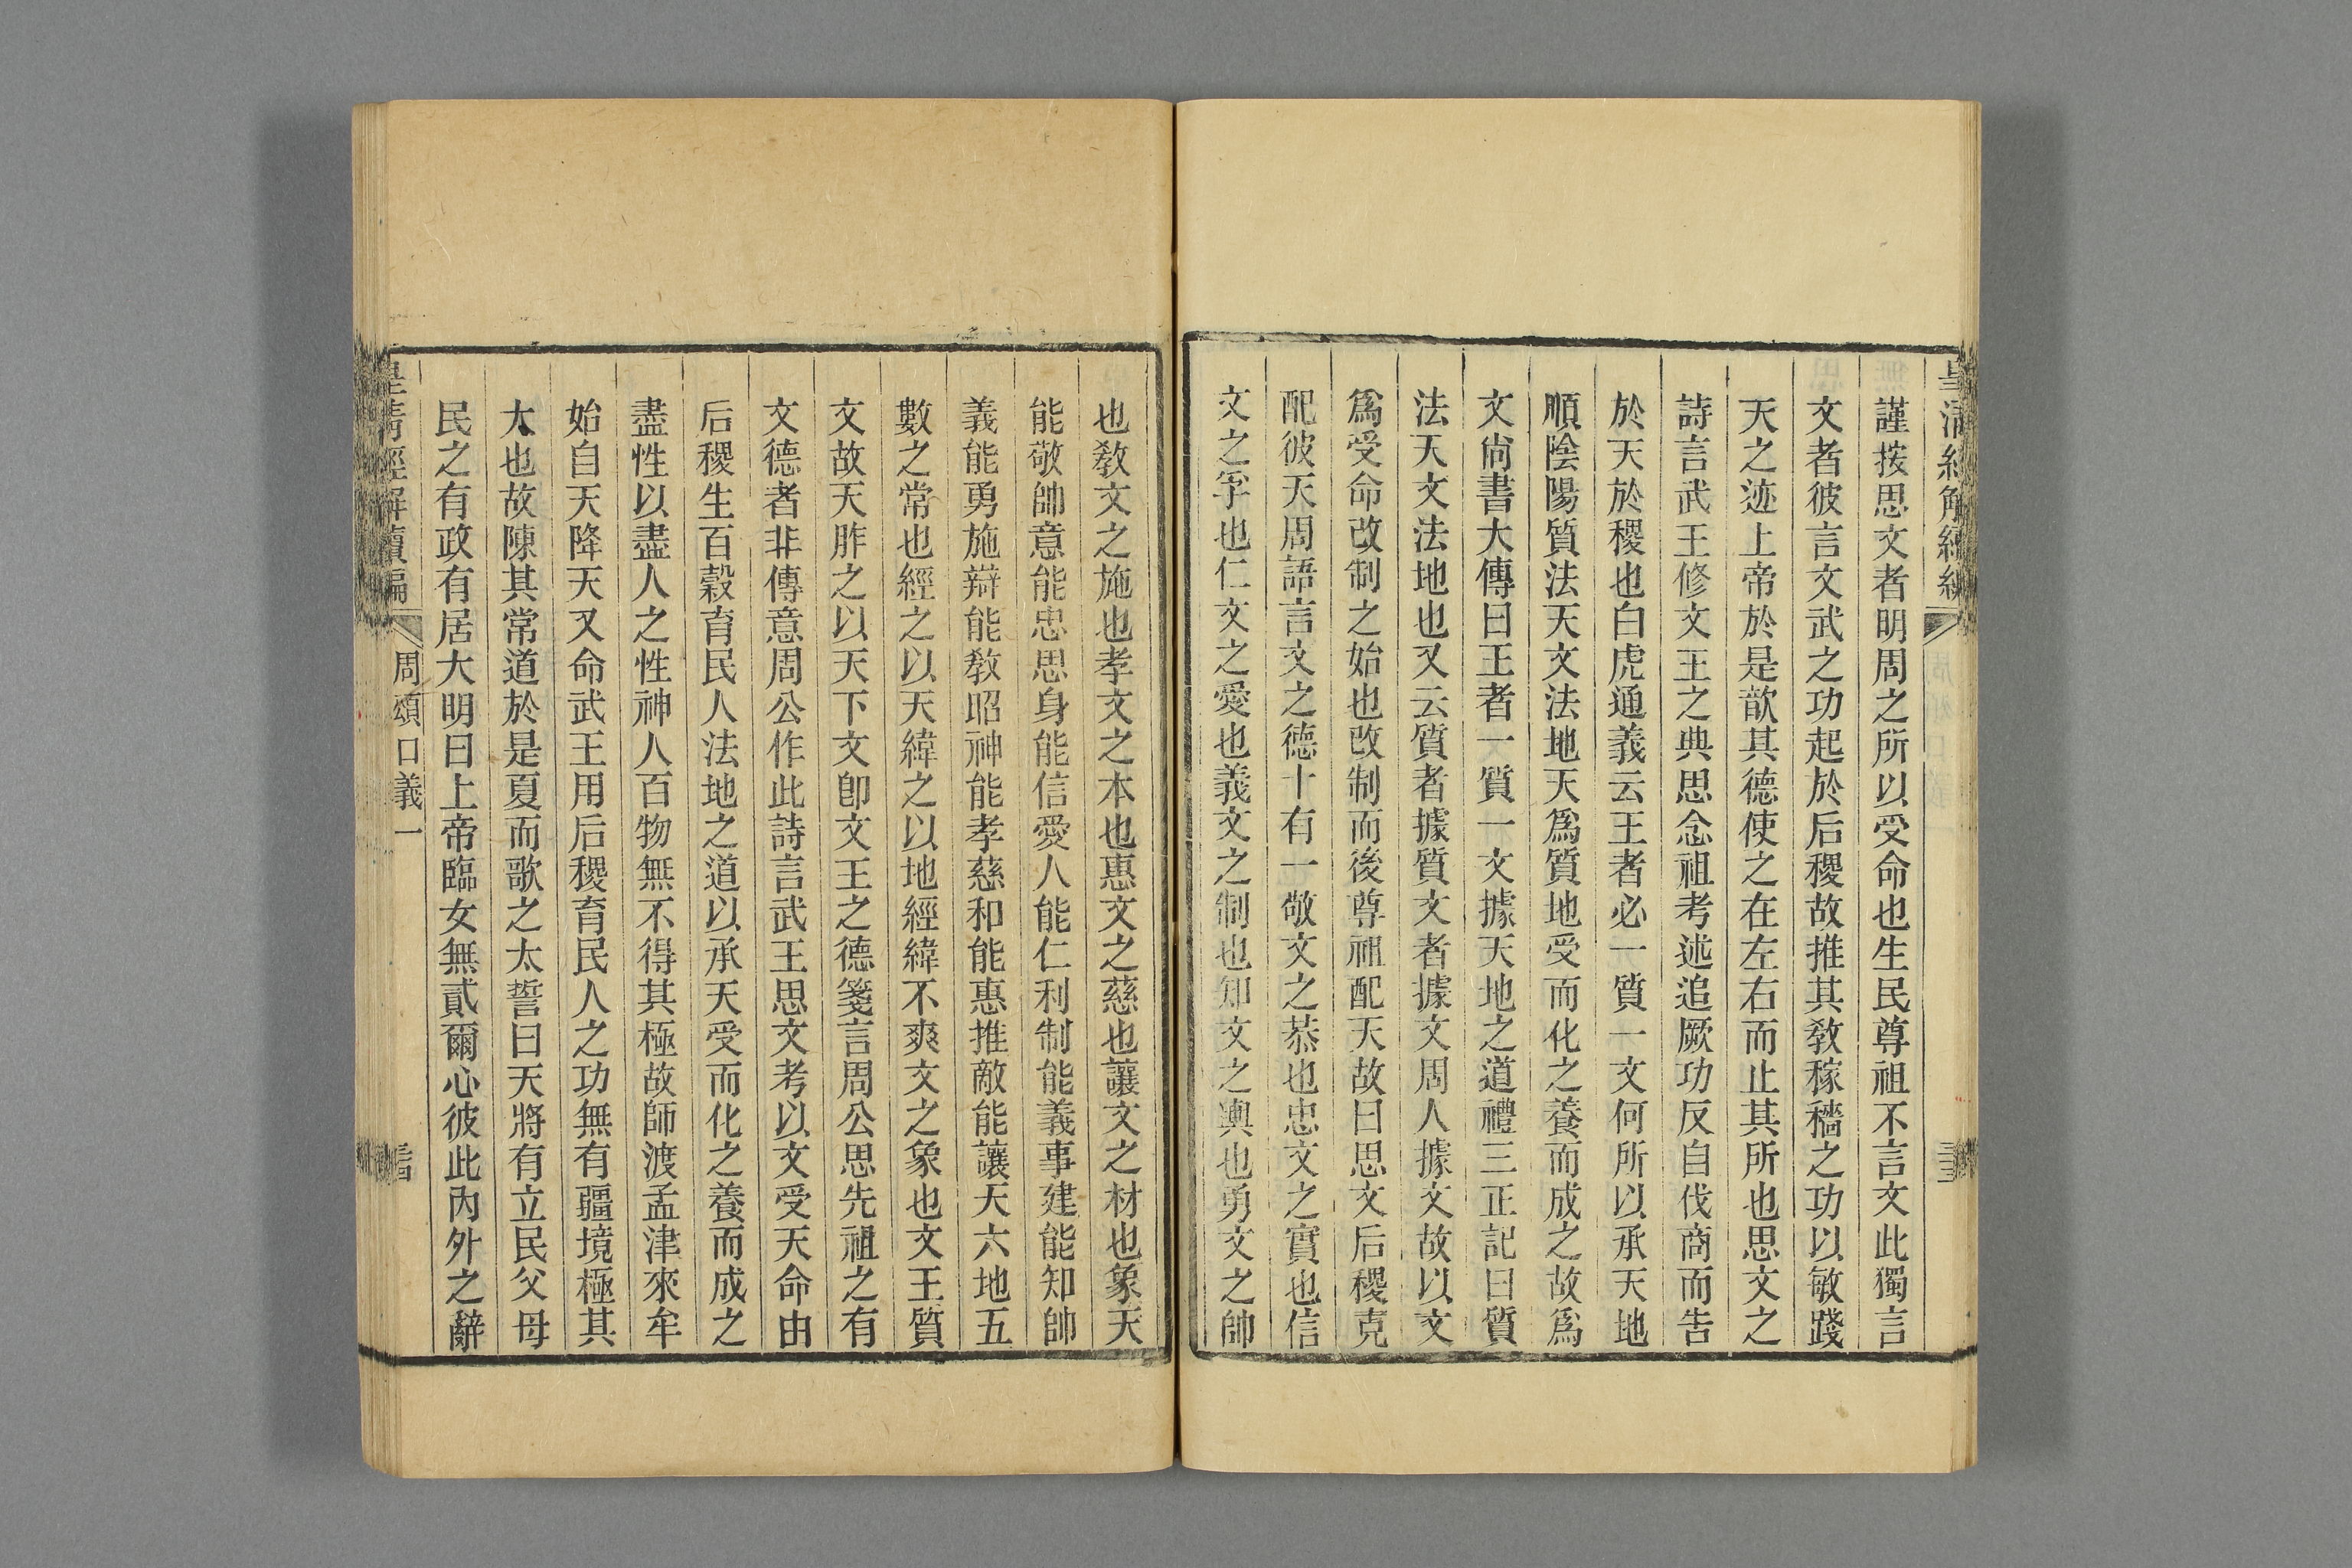 謹按思文者明周之所以受命也生民尊祖不言文此獨言
文者彼言文武之功起於后稷故推其教稼穡之功以敏踐
天之迹上帝於是歆其德使之在左右而止其所也思文之
詩言武王修文王之典思念祖考述追厥功反自伐商而告
於天於稷也白虎通義云王者必一質一文何所以承天地
順陰陽質法天文法地天爲質地受而化之養而成之故爲
文尙書大傳曰王者一質一文據天地之道禮三正記曰質
法天文法地也又云質者據質文者據文周人據文故以文
爲受命改制之始也改制而後尊祖配天故曰思文后稷克
配彼天周語言文之德十有一敬文之恭也忠文之實也信
文之孚也仁文之愛也義文之制也知文之輿也勇文之帥
也敎文之施也孝文之本也惠文之慈也讓文之材也象天
能敬帥意能忠思身能信愛人能仁利制能義事建能知帥
義能勇施辯能敎昭神能孝慈和能惠推敵能讓天六地五
數之常也經之以天緯之以地經緯不爽文之象也文王質
文故天胙之以天下文卽文王之德箋言周公思先祖之有
文德者非傳意周公作此詩言武王思文考以文受天命由
后稷生百穀育民人法地之道以承天受而化之養而成之
盡性以盡人之性神人百物無不得其極故師渡孟津來牟
始自天降天又命武王用后稷育民人之功無有疆境極其
大也故陳其常道於是夏而歌之太誓曰天將有立民父母
民之有政有居大明曰上帝臨女無貳爾心彼此內外之辭
皇清經解續編
周頌口義一